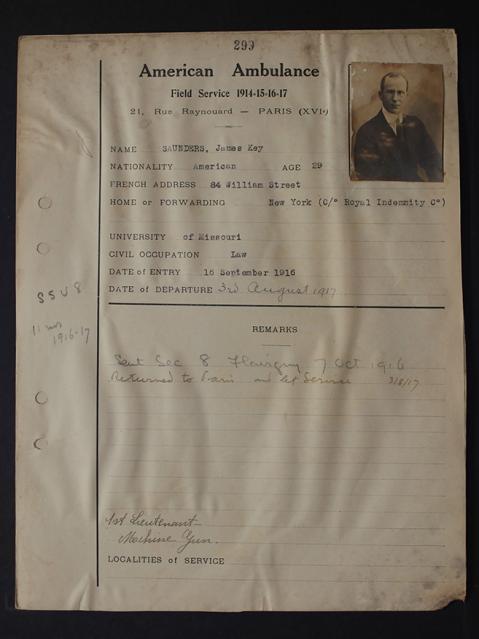 299
American Ambulance
Field Service 1914-15-16-17
21, Rue Raynouard — PARIS (XVIe)
NAME SAUNDERS, James Key
NATIONALITY American AGE 29
FRENCH ADDRESS 84 William Street
HOME or FORWARDING New York (C/o Royal Indemnity Co)
UNIVERSITY of Missouri
CIVIL OCCUPATION Law
DATE of ENTRY 16 September 1916
DATE of DEPARTURE 3rd August 1917
SSU 8
11 mos
1916-17
REMARKS
Sent Sec 8 Flavigny 7 Oct 1916
Returned to Paris and left Service 3/8/17
1st Lieutenant
Machine Gun.
LOCALITIES of SERVICE